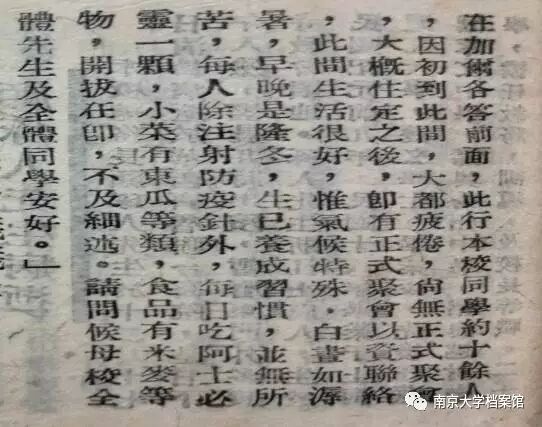 在加爾各答前面，此行本校同學約十餘人
，因初到此間，大都疲倦，尙無正式聚會
，大概住定之後，卽有正式聚會以資聯絡
，此間生活很好，惟氣候特殊，白晝如溽
暑，早晚是隆冬，生已養成習慣，並無所
苦，每人除注射防疫針外，每日吃阿士必
靈一顆，小菜有東瓜等類，食品有米麥等
物，開拔在卽，不及細述。請問候母校全
體先生及全體同學安好。」
南京大学档案馆